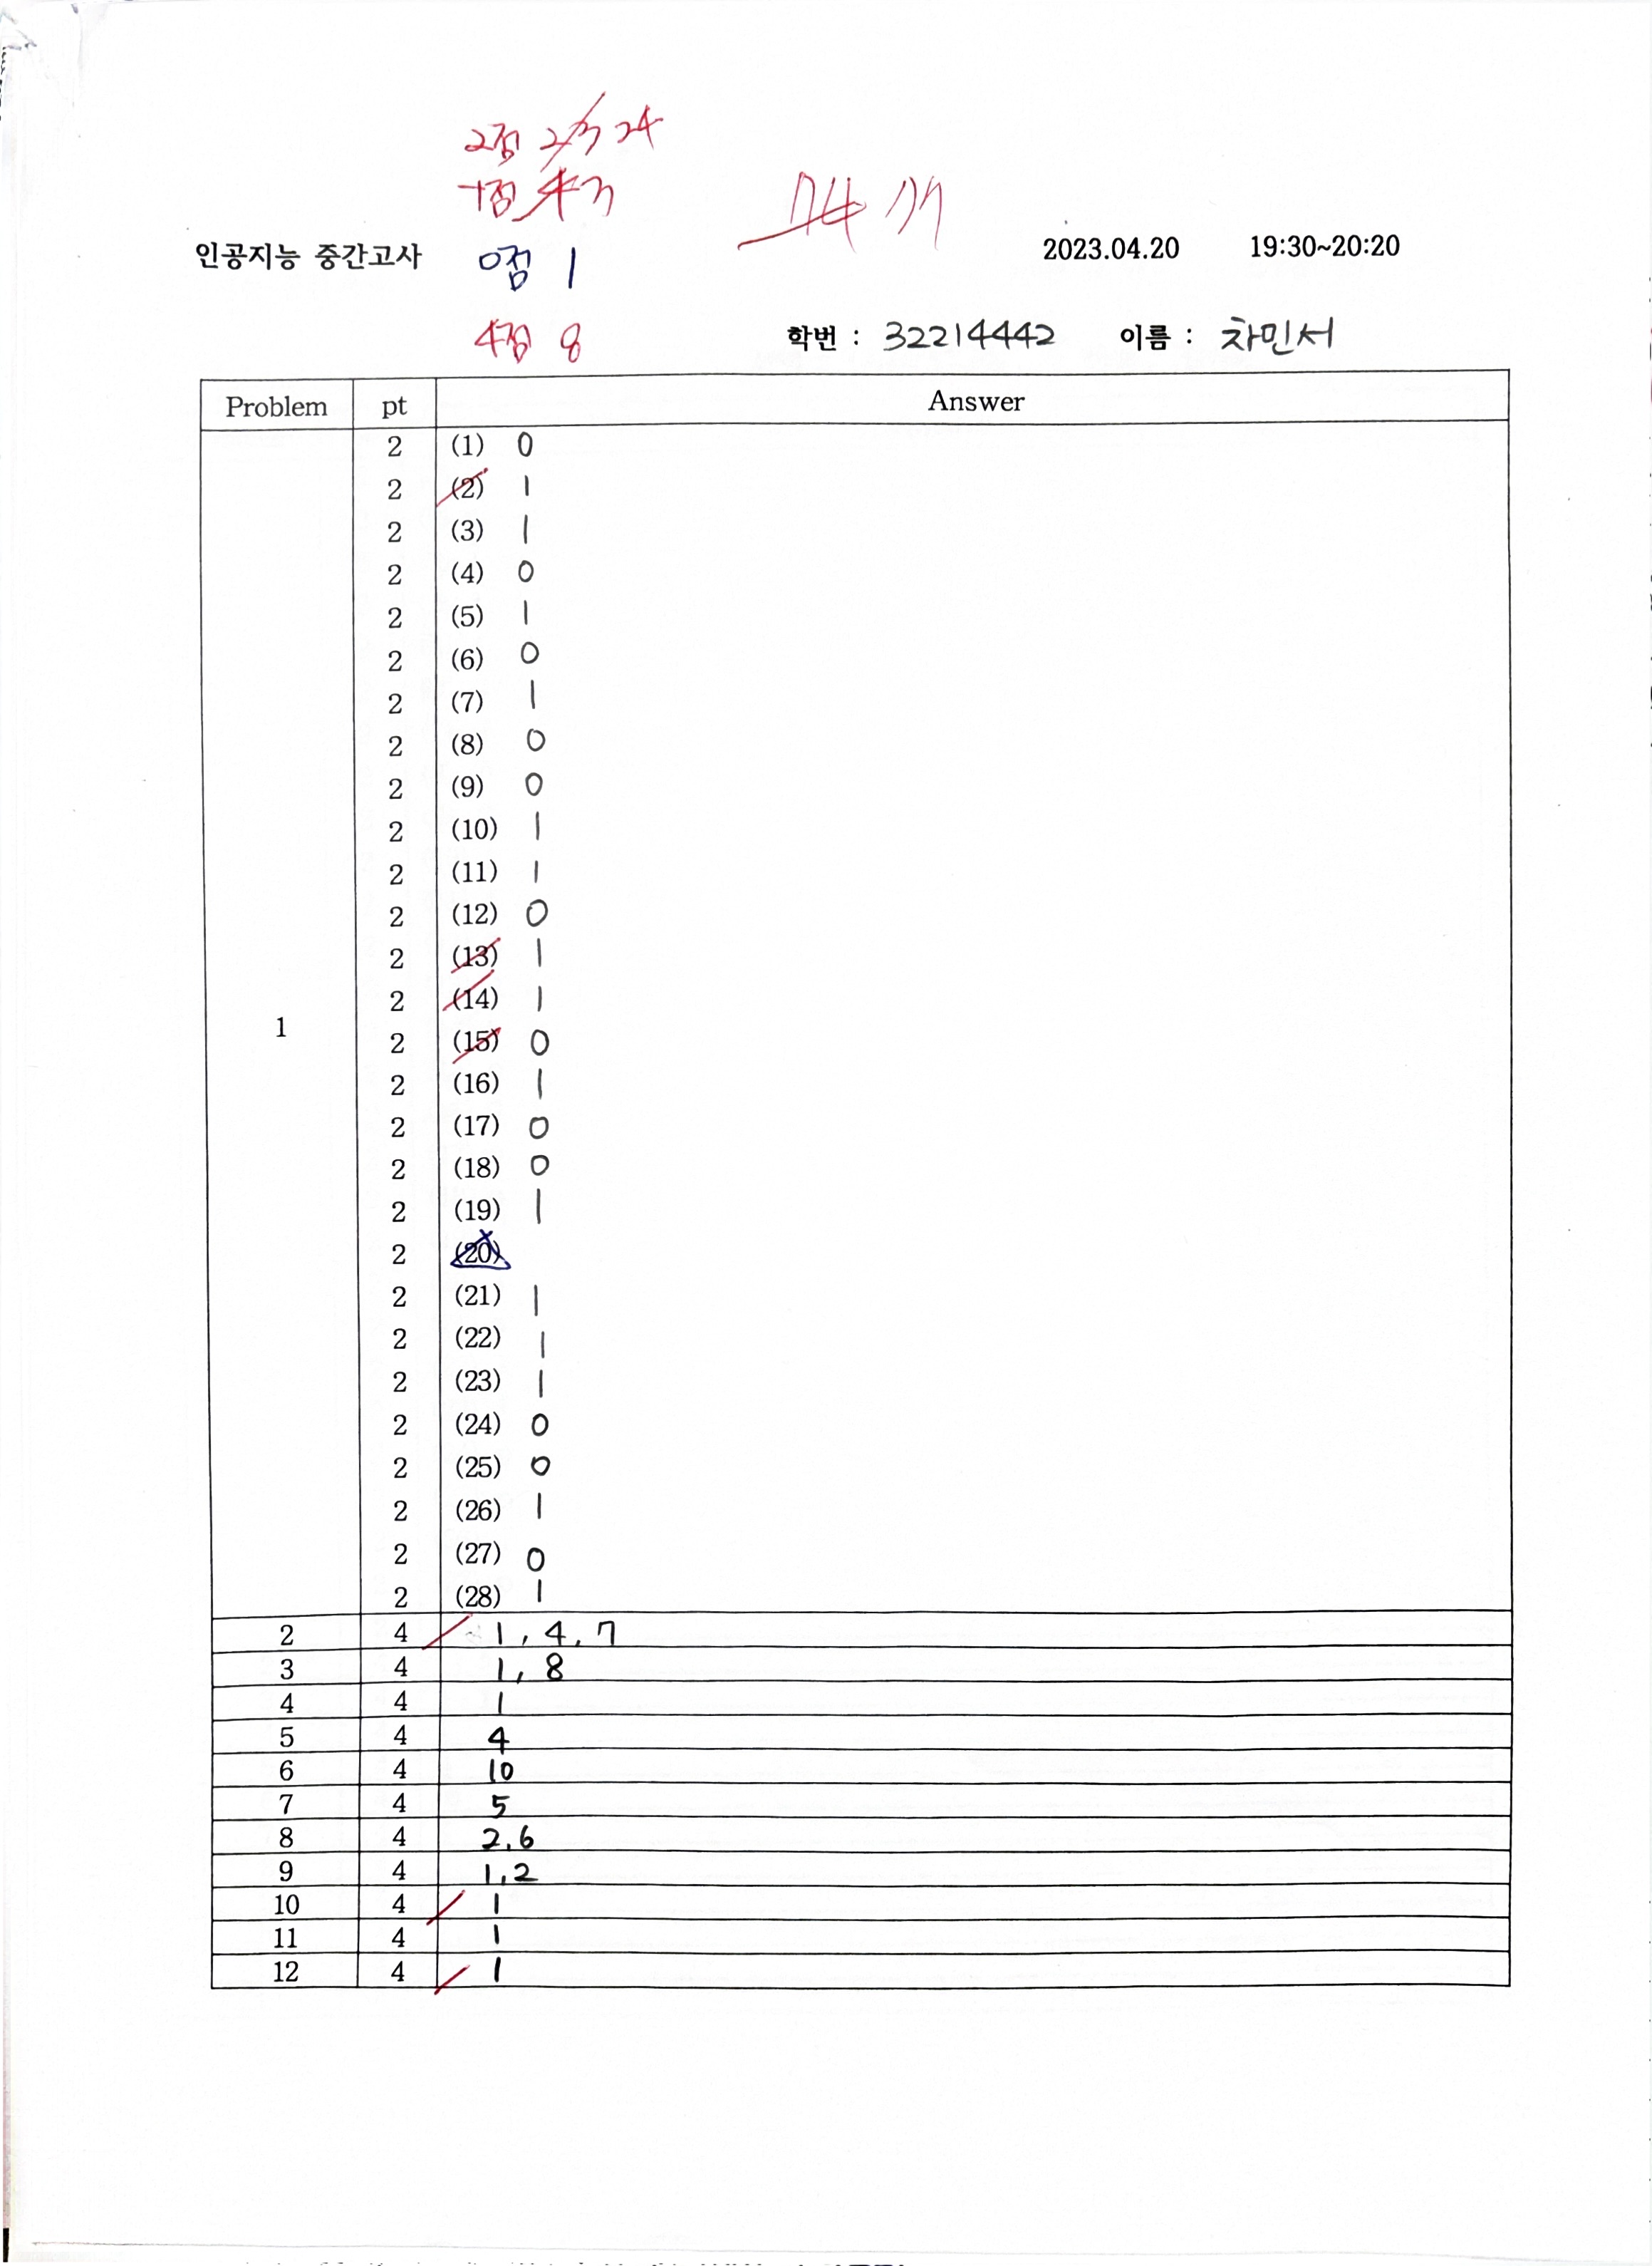 2점 23 24
-1점 4 3
74 77
인공지능 중간고사 0점 1 2023.04.20 19:30~20:20
4점 8 학번 : 32214442 이름 : 차민서
Problem pt Answer
2 (1) 0
2 (2) 1
2 (3) 1
2 (4) 0
2 (5) 1
2 (6) 0
2 (7) 1
2 (8) 0
2 (9) 0
2 (10) 1
2 (11) 1
2 (12) 0
2 (13) 1
2 (14) 1
1 2 (15) 0
2 (16) 1
2 (17) 0
2 (18) 0
2 (19) 1
2 (20)
2 (21) 1
2 (22) 1
2 (23) 1
2 (24) 0
2 (25) 0
2 (26) 1
2 (27) 0
2 (28) 1
2 4 1, 4, 7
3 4 1, 8
4 4 1
5 4 4
6 4 10
7 4 5
8 4 2, 6
9 4 1, 2
10 4 1
11 4 1
12 4 1